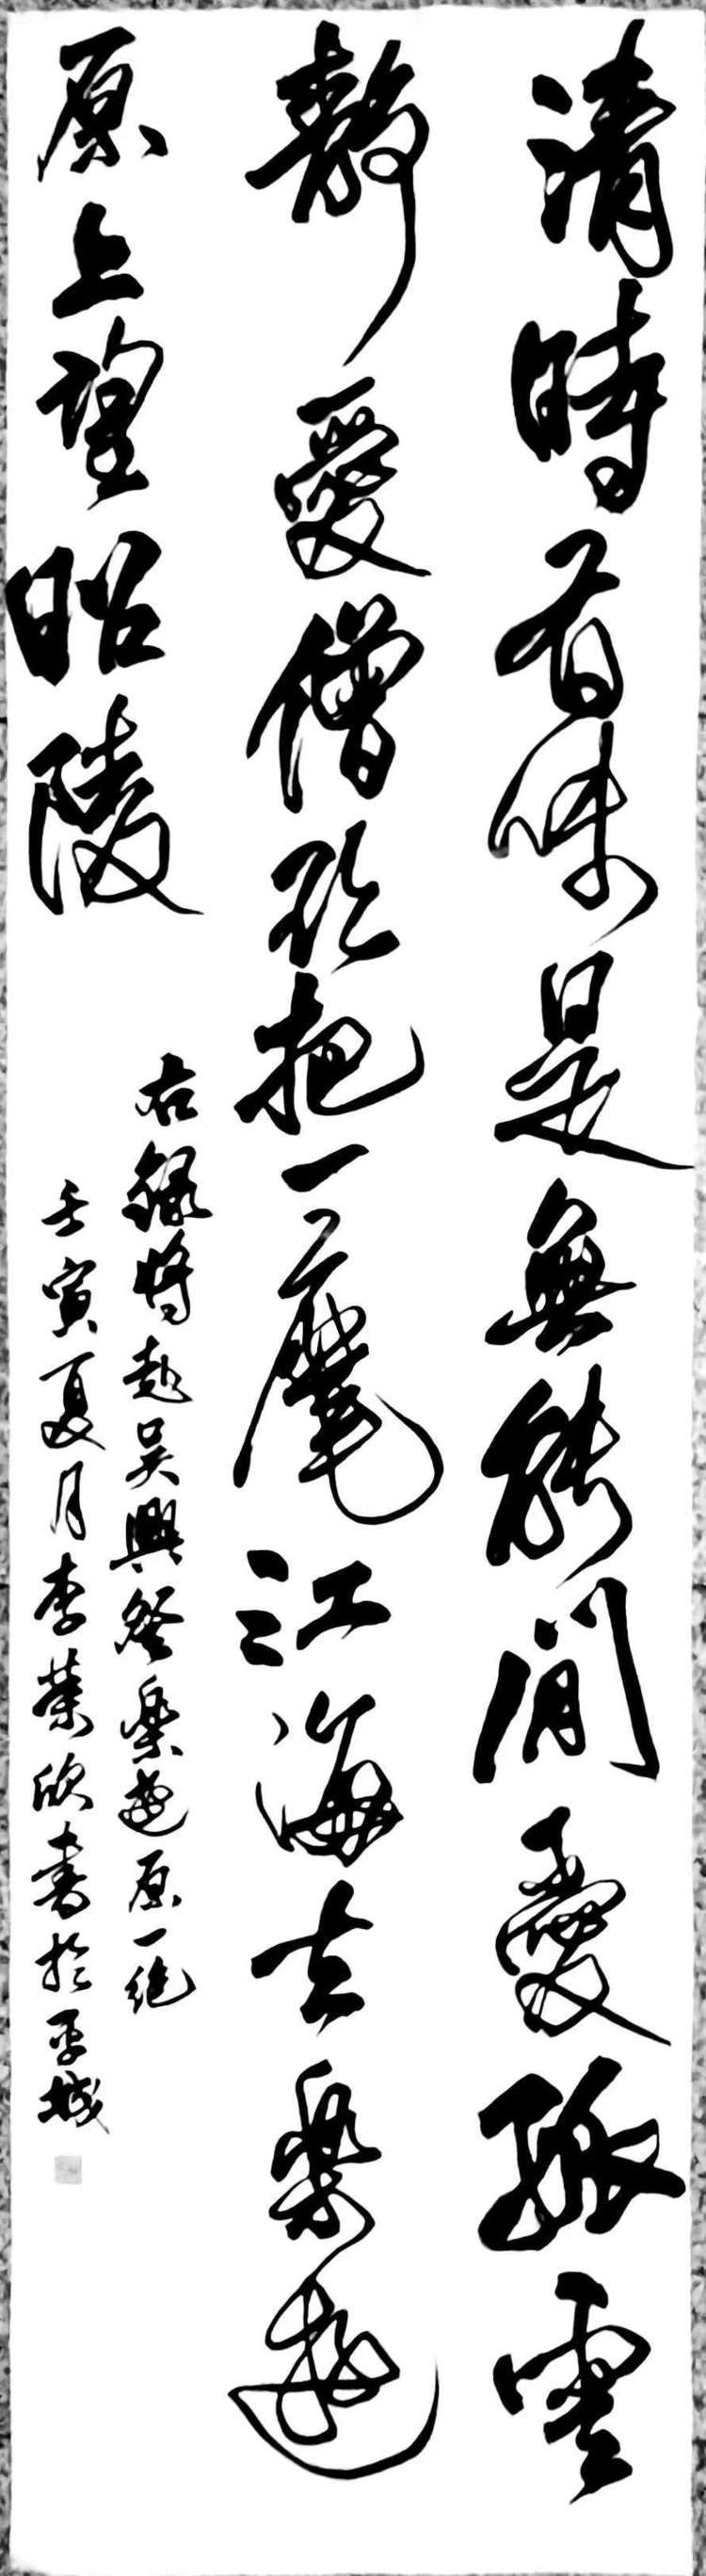 清時有味是無能閒愛孤雲
靜愛僧欲把一麾江海去樂遊
原上望昭陵
右錄將赴吳興登樂遊原一絕
壬寅夏月李榮欣書於平城